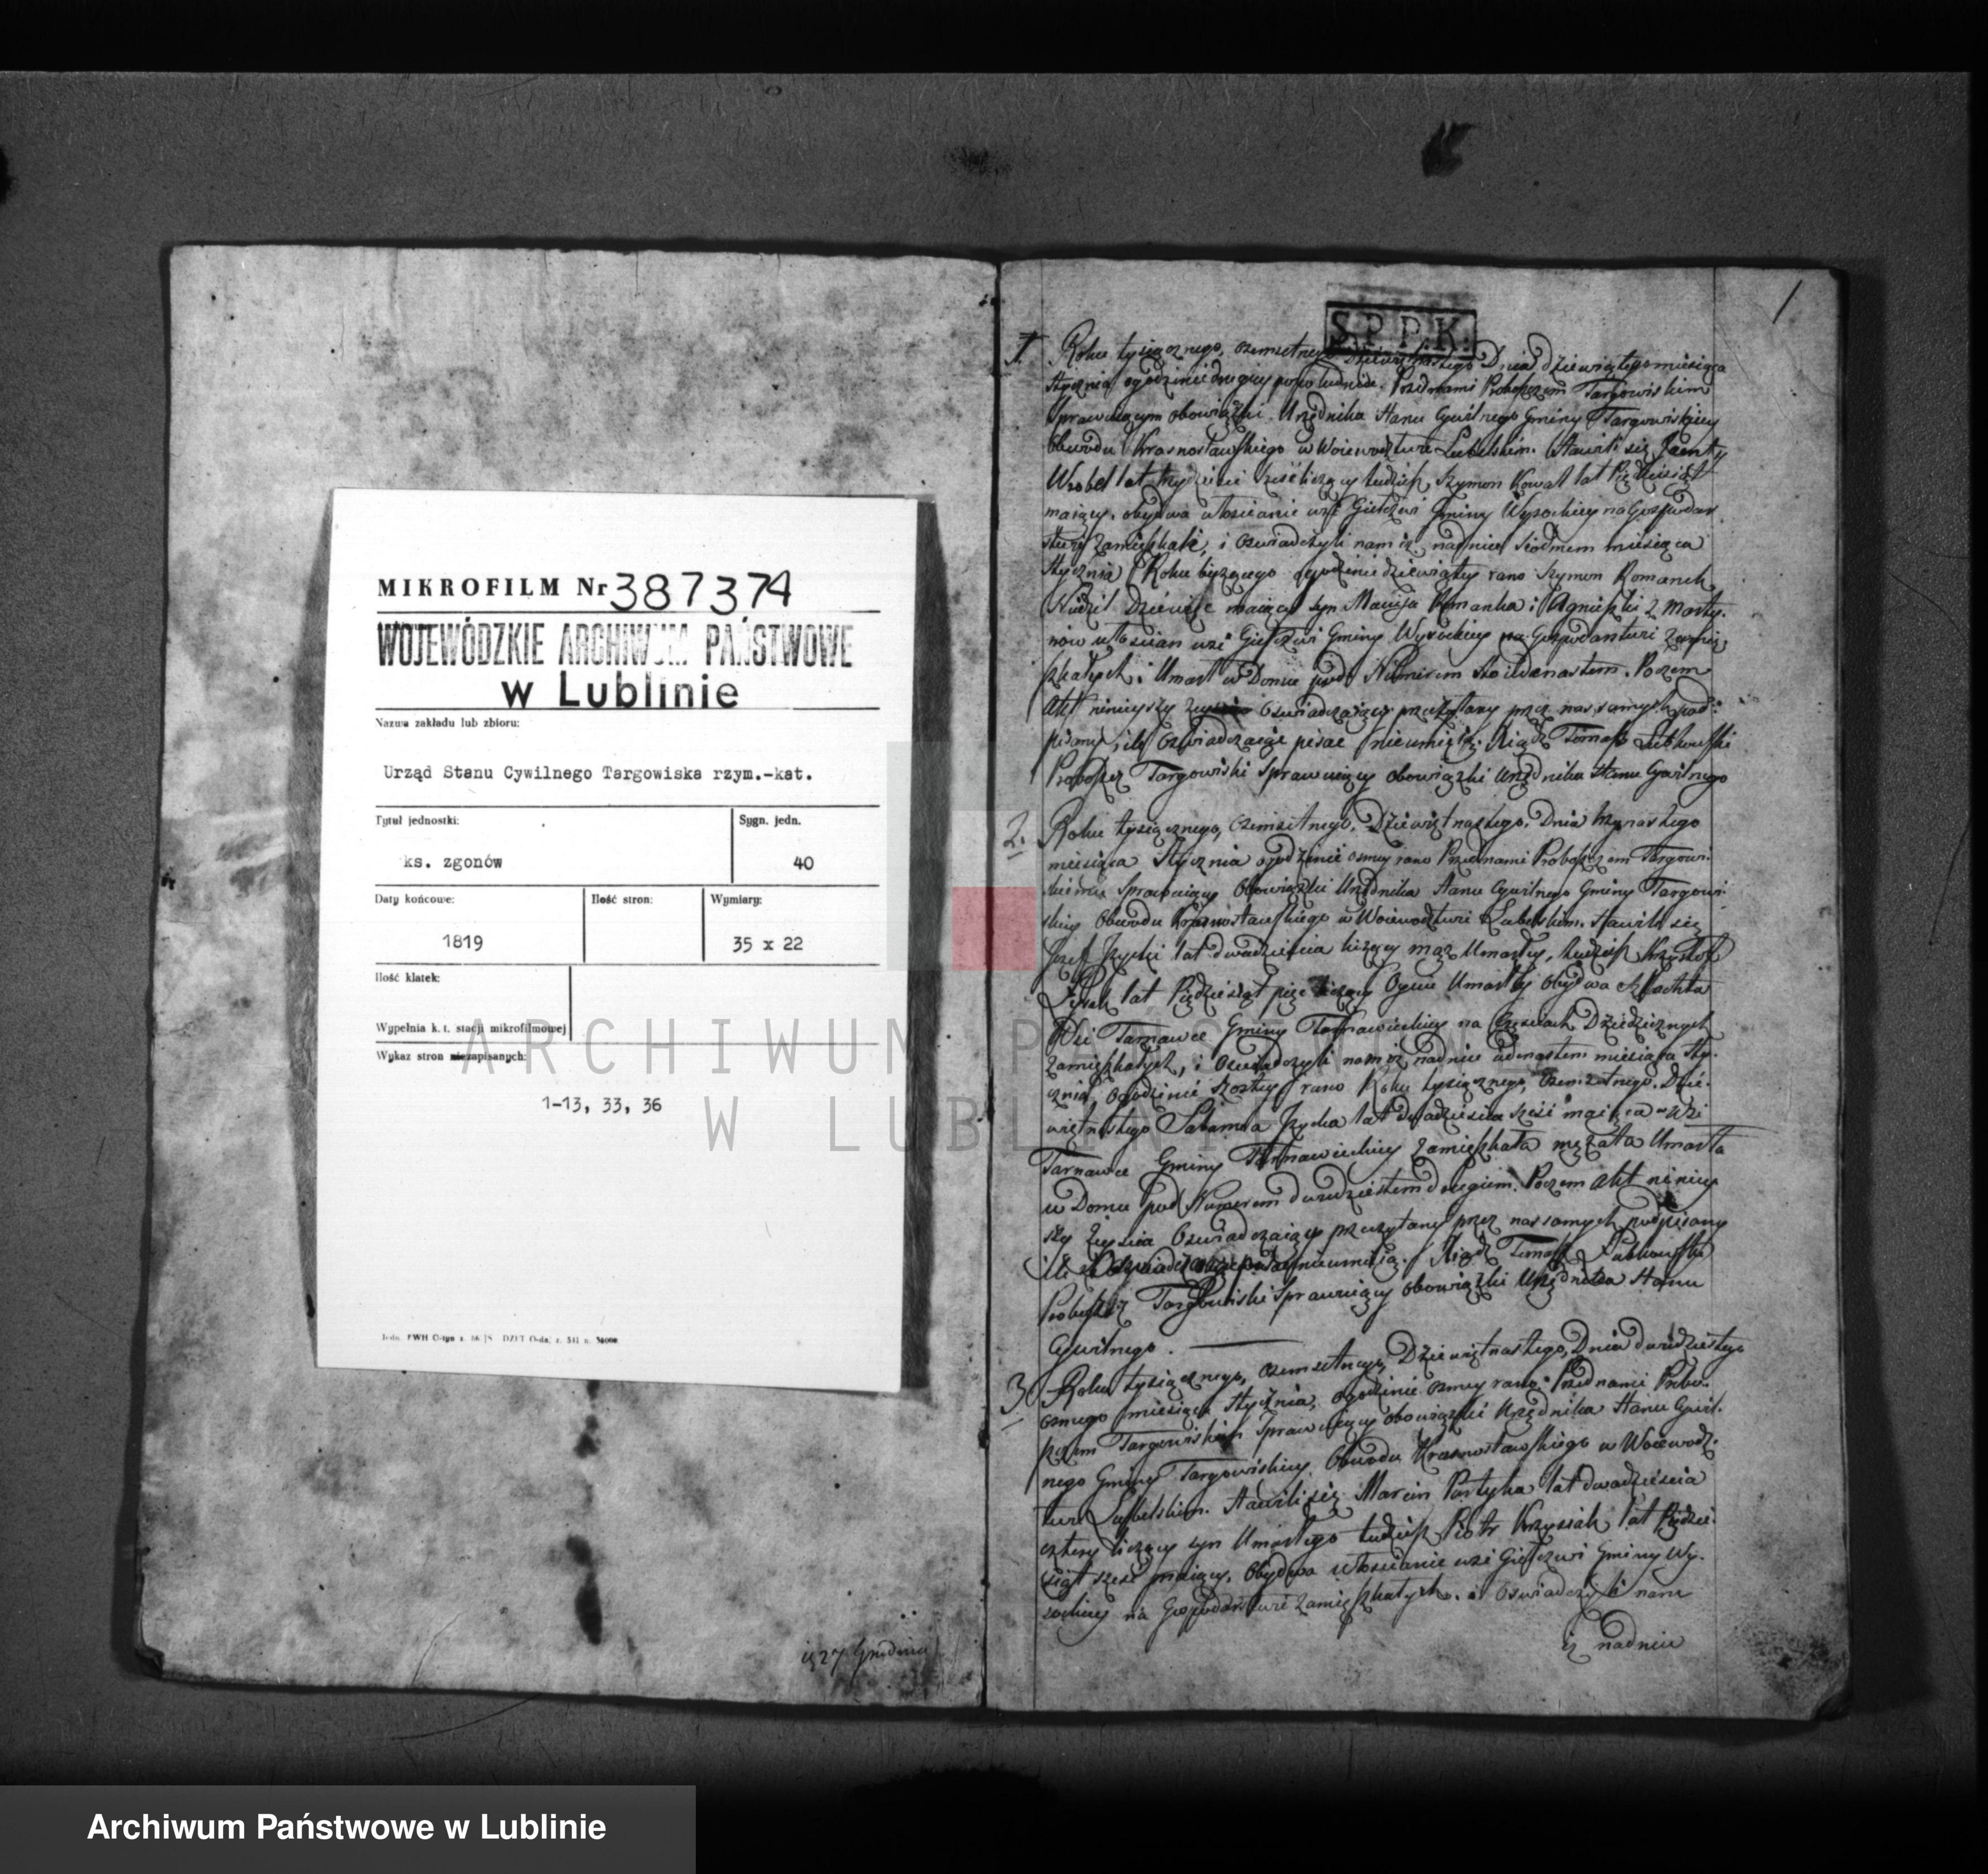 MIKROFILM Nr 387374
WOJEWÓDZKIE ARCHIWUM PAŃSTWOWE
w Lublinie
Nazwa zakładu lub zbioru:
Urząd Stanu Cywilnego Targowiska rzym.-kat.
Tytuł jednostki:
Sygn. jedn.
ks. zgonów
40
Daty końcowe:
Ilość stron:
Wymiary:
1819
35 x 22
Ilość klatek:
Wypełnia k. t. stacji mikrofilmowej
Wykaz stron niezapisanych:
1-13, 33, 36
iż 27 Grudnia
1
S.P.P.K.
1. Roku tysiącznego, osmsetnego Dziewiętnastego Dnia dziewiątego miesiąca
Stycznia ogodzinie drugiey popołudniu. Przednami Proboszczem Targowiskim
Sprawuiącym obowiązki Urzędnika Stanu Cywilnego Gminy Targowiskiey
Obwodu Krasnostawskiego w Woiewodztwie Lubelskim. Stawili się Jacenty
Wrobel lat trzydzieści sześć liczący tudzież Szymon Kowal lat Pięćdziesiąt
maiący, obydwa włościanie wsi Giełczwi Gminy Wysockiey na Gospodar
stwie zamięszkali, i oswiadczyli nam iż nadniu siodmem miesiąca
Stycznia Roku bieżącego ogodzinie dziewiątey rano Szymon Romanek
maiący syn Macieja Romanka i Agnieszki z Marty.
nów włościan wsi Giełczwi Gminy Wysockiey na Gospodarstwie zamię
szkałych; Umarł w Domu pod Numerem sto iedenastem. Poczem
Akt ninieyszy Oswiadczaiącym przeczytany przez nas samych pod:
pisany, ile Oswiadczaiące pisać nieumieią. Xiądz Tomasz Lutkowski
Proboszcz Targowiski Sprawuiący obowiązki Urzędnika Stanu Cywilnego
2. Roku tysiącznego, osmsetnego, Dziewiętnastego, Dnia trzynastego
miesiąca Stycznia ogodzinie osmey rano Przednami Proboszczem Targowi.
Sprawuiący Obowiązki Urzędnika Stanu Cywilnego Gminy Targowi
skiey Obwodu Krasnostawskiego w Woiewodztwie Lubelskim. Stawili się
Józef lat dwadzieścia liczący mąż Umarłey, tudzież Krzysztof
lat Pięćdziesiąt pięć liczący Oyciec Umarłey obydwa Szlachta
Wsi Tarnawce Gminy Tarnawieckiey na Częściach Dziedzicznych
Zamięszkałych, i Oswiadczyli nam iż nadniu iedenastem miesiąca Sty.
cznia, ogodzinie szostey rano Roku tysiącznego, Osmsetnego. Dzie.
więtnastego Salomea lat dwadzieścia sześć maiąca w Wsi
Tarnawce Gminy Tarnawieckiey zamięszkała mężata Umarła
w Domu pod Numerem dwudziestem drugiem. Poczem Akt niniey
szy Oswiadczaiącym przeczytany przez nas samych podpisany
ile Oswiadczaiące pisać nieumieią. Xiądz Tomasz Lutkowski
Proboszcz Targowiski Sprawuiący obowiązki Urzędnika Stanu
Cywilnego.
3. Roku tysiącznego, osmsetnego, Dziewiętnastego, Dnia dwudziestego
osmego miesiąca Stycznia, ogodzinie osmey rano. Przednami Probo.
szczem Targowiskim Sprawuiący obowiązki Urzędnika Stanu Cywil.
nego Gminy Targowiskiey Obwodu Krasnostawskiego w Woiewodz.
twie Lubelskim. Stawili się Marcin Partyka lat dwadzieścia
cztery liczący syn Umarłego tudzież Piotr Krzysiak lat Pięćdzie.
siąt sześć maiący. Obydwa włościanie wsi Giełczwi Gminy Wy.
sockiey na Gospodarstwie zamięszkałych. i Oswiadczyli nam
iż nadniu
ARCHIWUM PAŃSTWOWE
W LUBLINIE
Archiwum Państwowe w Lublinie